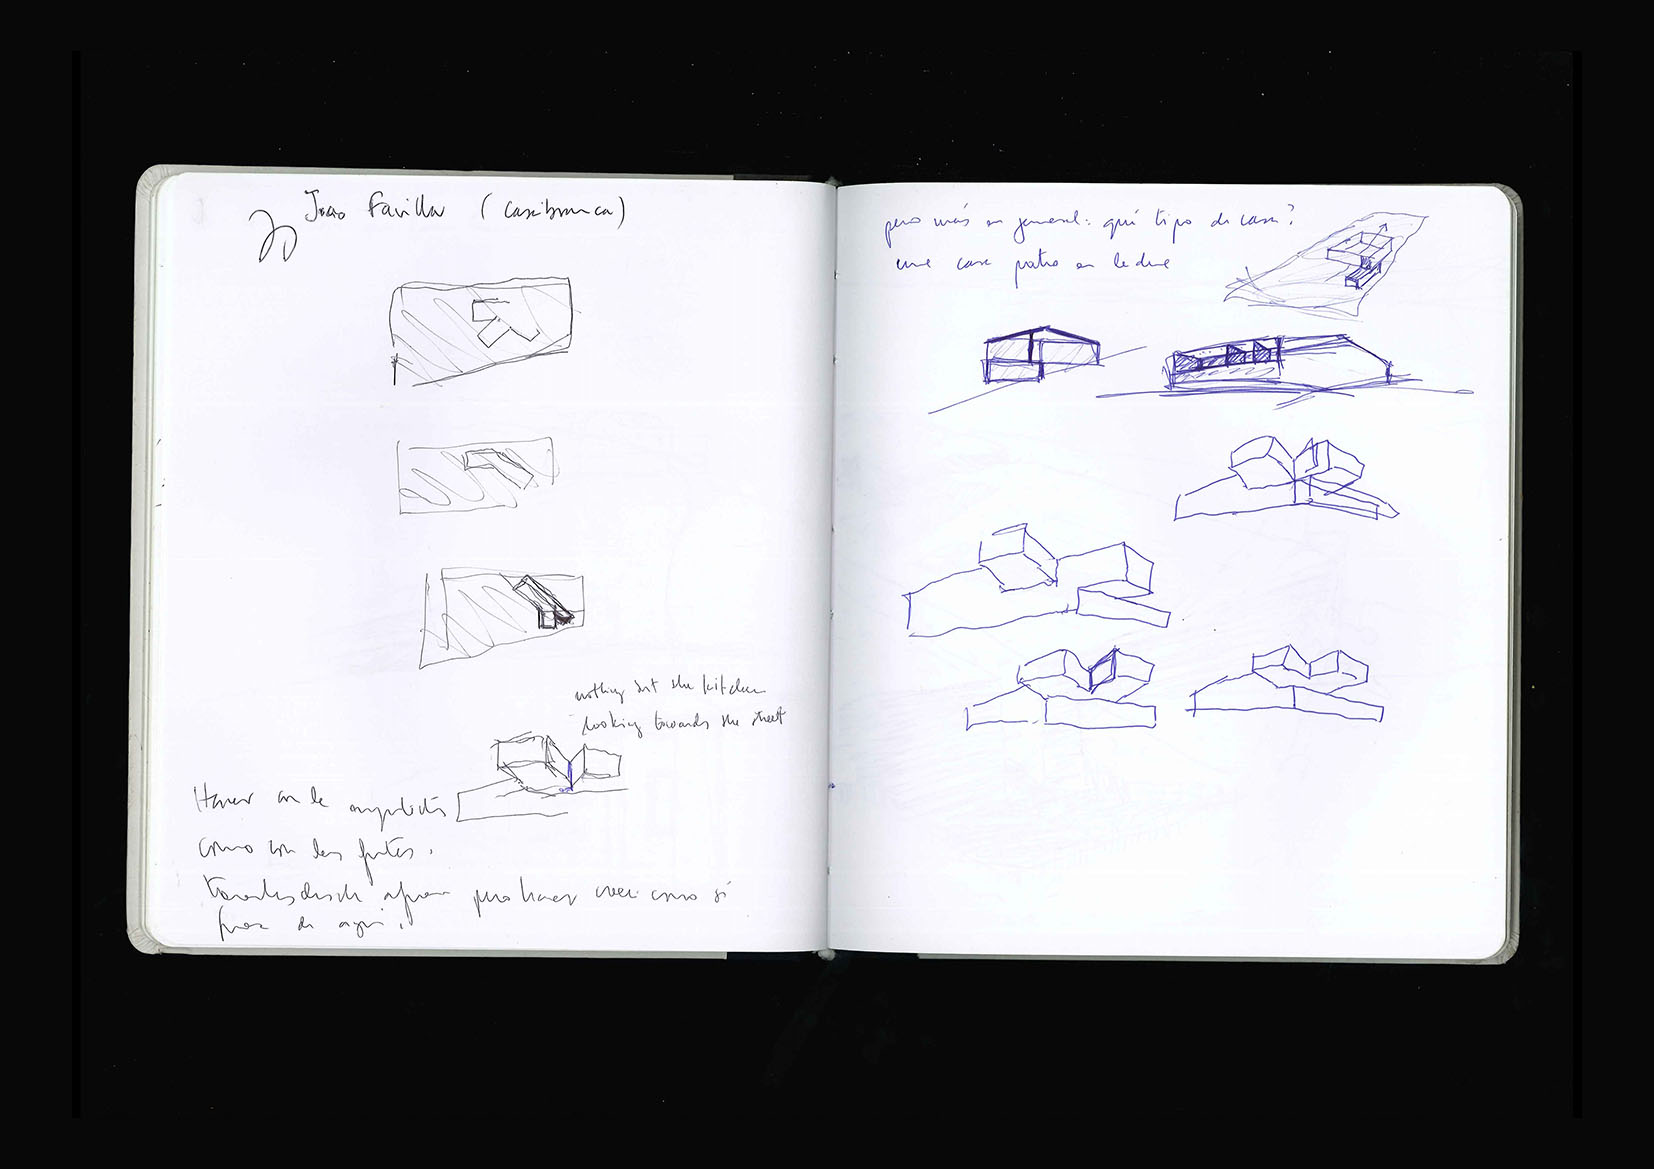 Joao Favilla (Casabranca)
nothing but the kitchen
looking towards the street
Hacer con la arquitectura
como con las frutas.
desde afuera pero hacer creer como si
fuera de aquí.
pero más en general: qué tipo de casa?
una casa patio en ladera